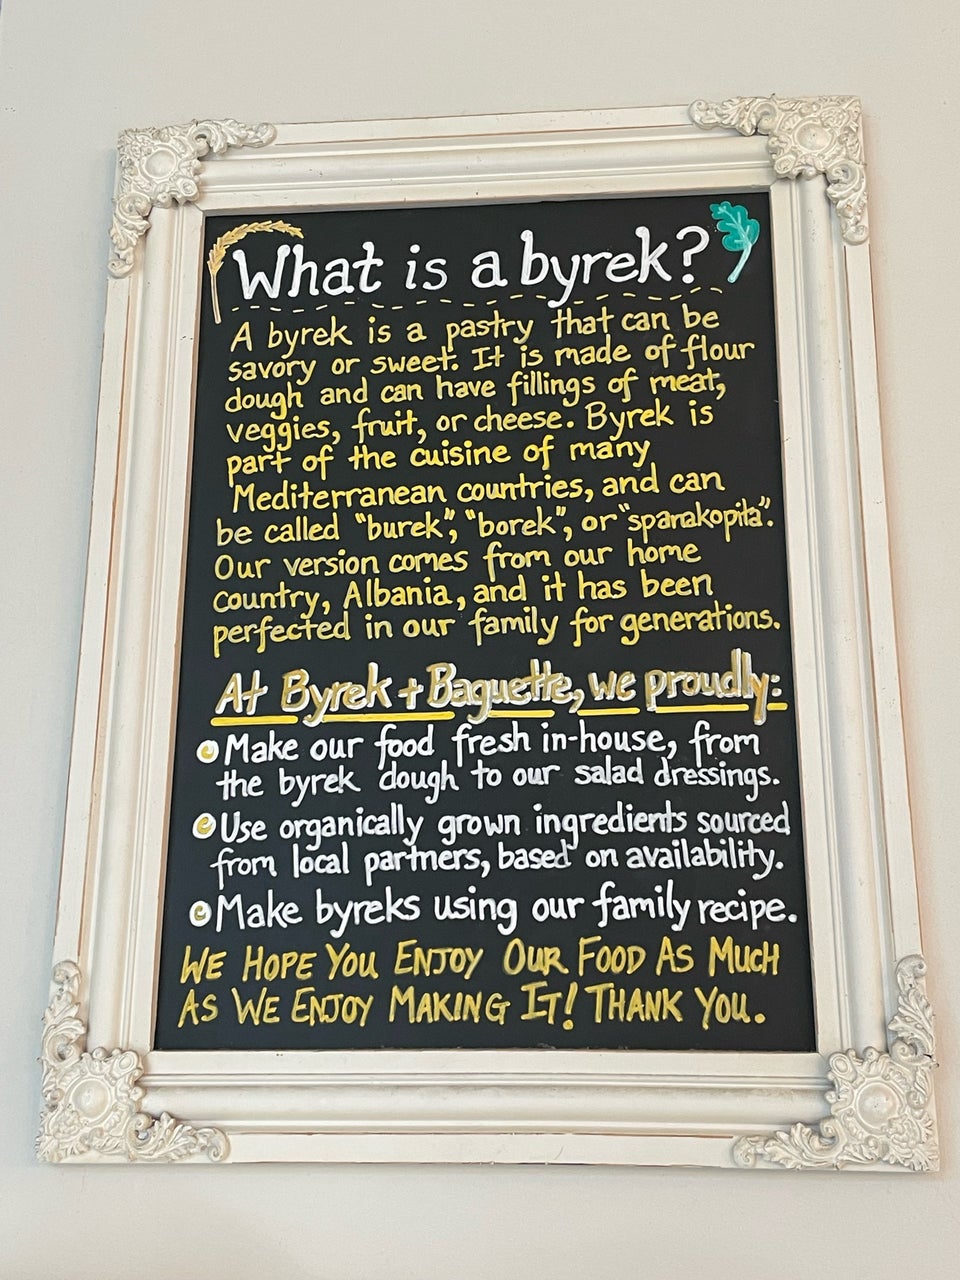 What is a byrek?
A byrek is a pastry that can be
savory or sweet. It is made of flour
dough and can have fillings of meat,
veggies, fruit, or cheese. Byrek is
part of the cuisine of many
Mediterranean countries, and can
be called "burek", "borek", or "spanakopita".
Our version comes from our home
country, Albania, and it has been
perfected in our family for generations.
At Byrek + Baguette, we proudly:
Make our food fresh in-house, from
the byrek dough to our salad dressings.
Use organically grown ingredients sourced
from local partners, based on availability.
Make byreks using our family recipe.
WE HOPE YOU ENJOY OUR FOOD AS MUCH
AS WE ENJOY MAKING IT! THANK YOU.